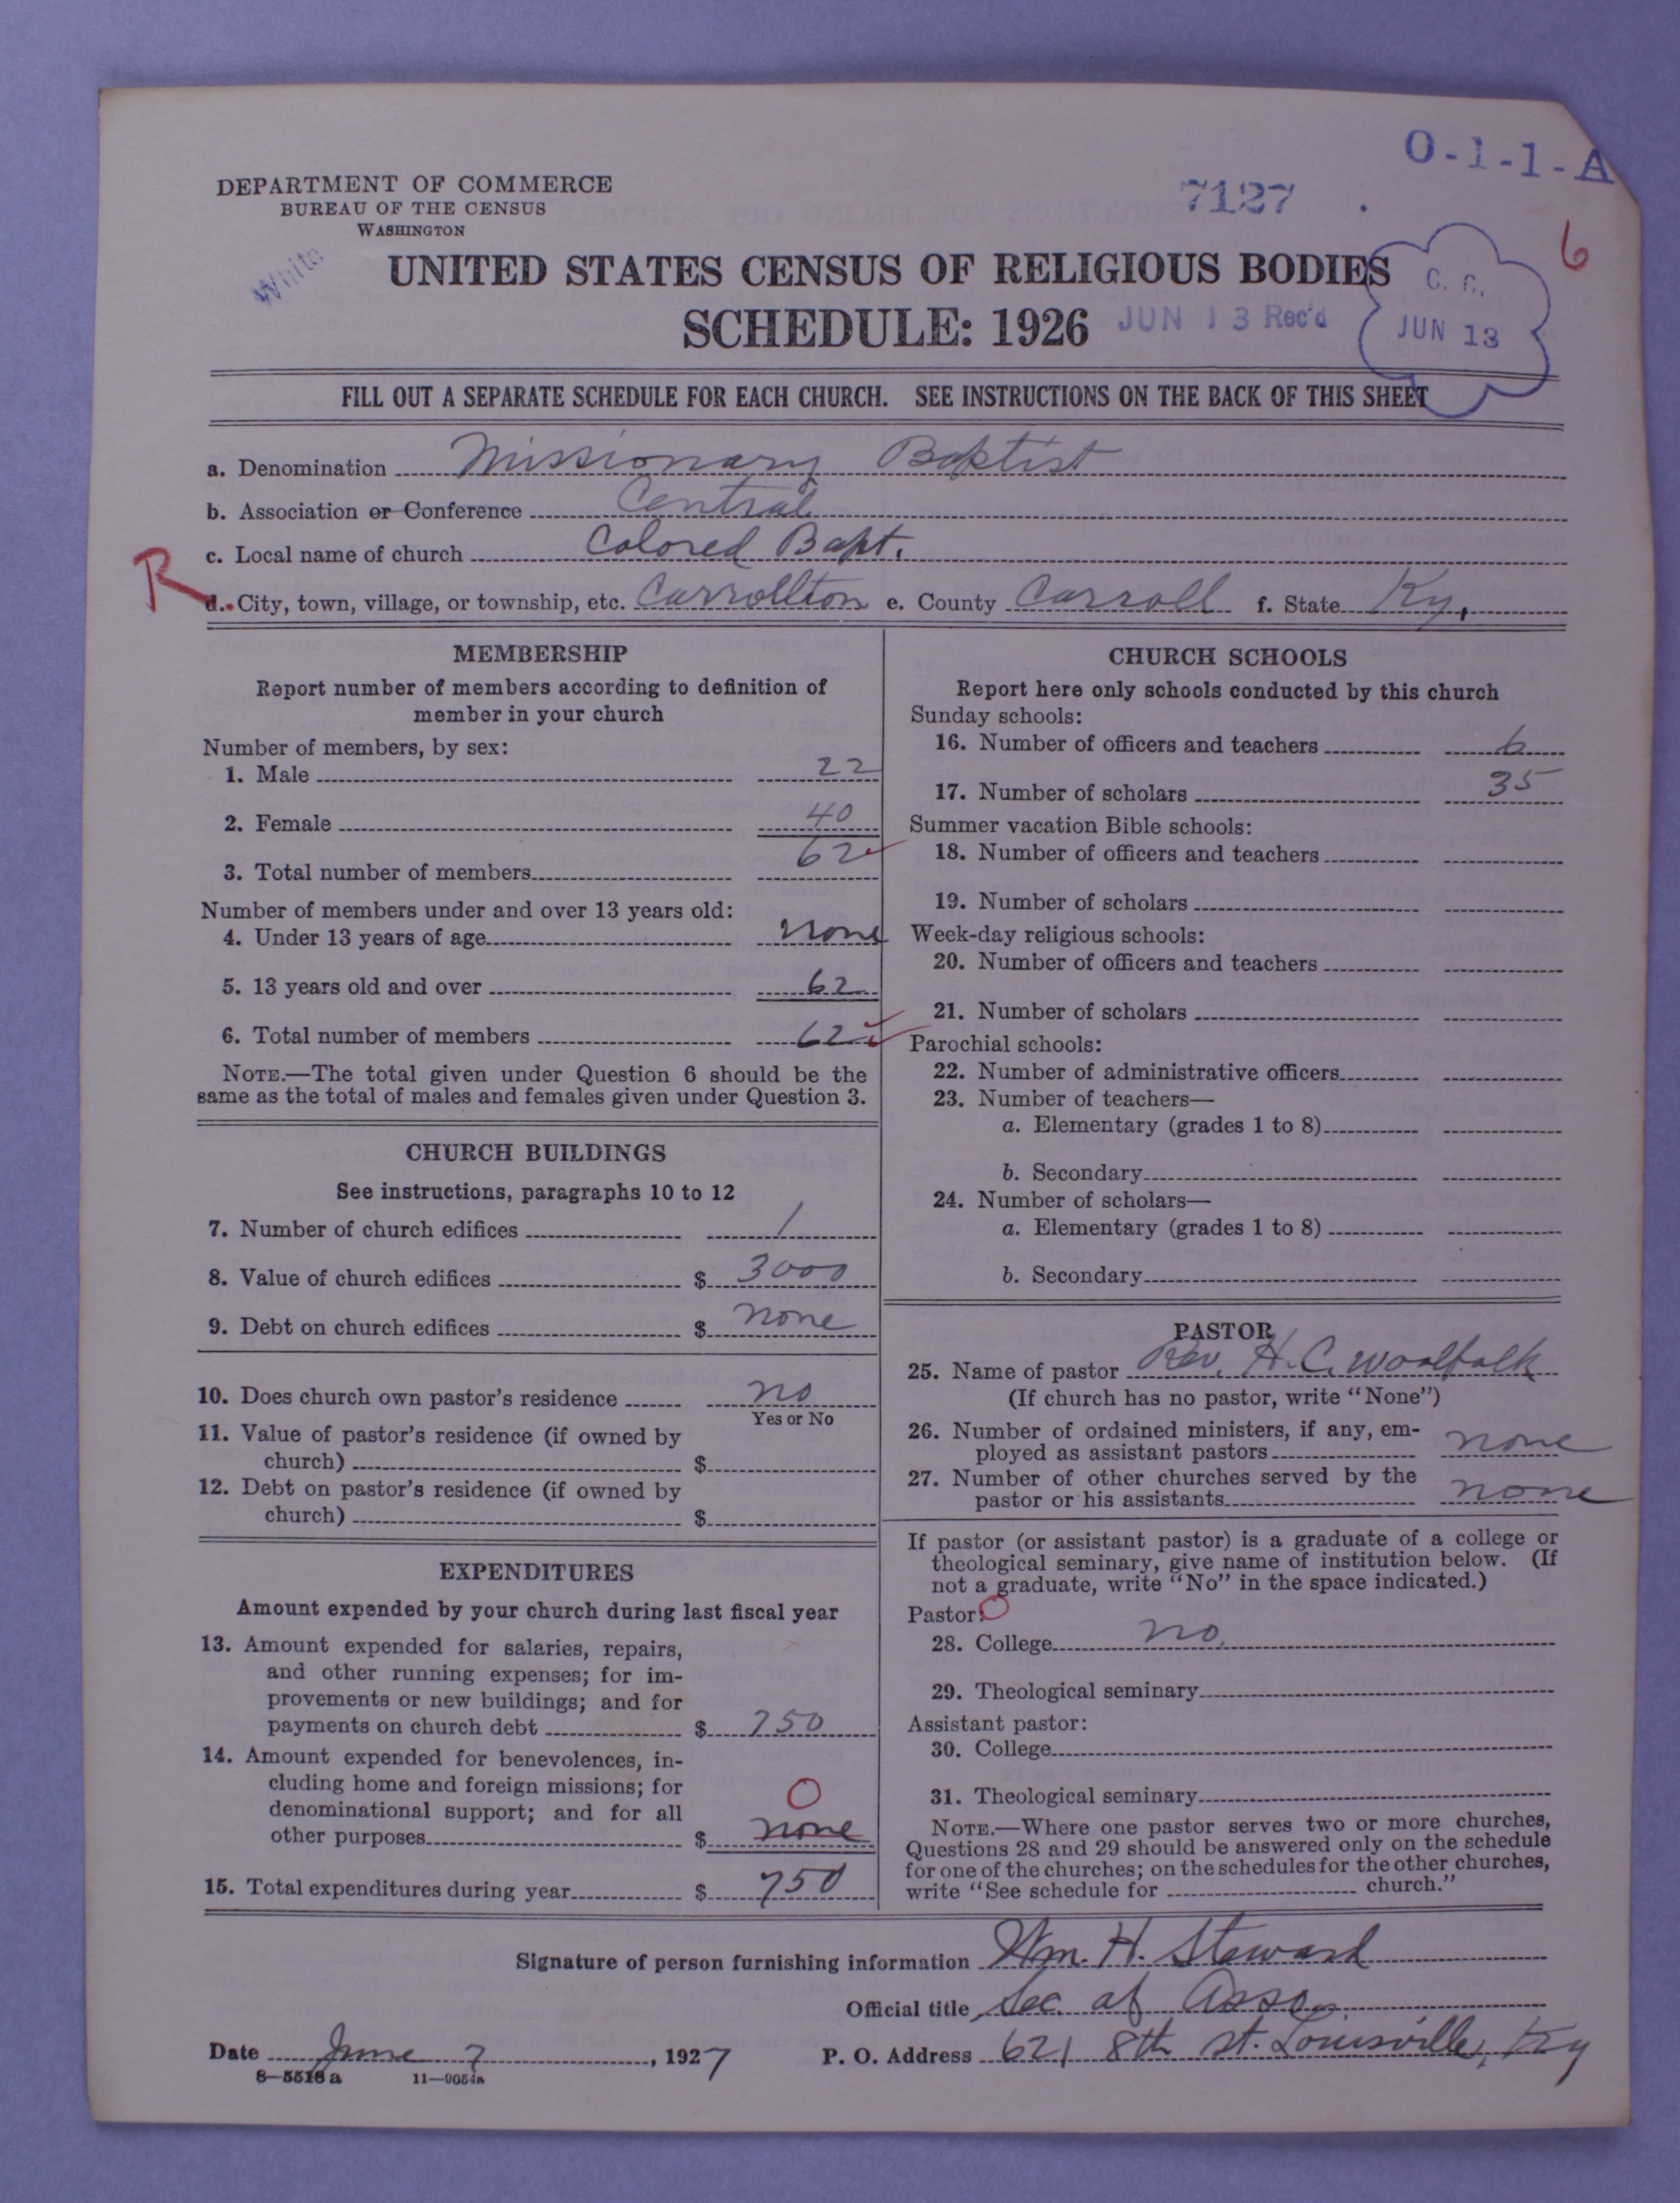 O-1-1-A
DEPARTMENT OF COMMERCE
BUREAU OF THE CENSUS
WASHINGTON
7127
6
White
UNITED STATES CENSUS OF RELIGIOUS BODIES
SCHEDULE: 1926
JUN 13 Rec'd
C. C.
JUN 13
FILL OUT A SEPARATE SCHEDULE FOR EACH CHURCH. SEE INSTRUCTIONS ON THE BACK OF THIS SHEET
a. Denomination Missionary Baptist
b. Association or Conference Central
c. Local name of church Colored Bapt.
R
d. City, town, village, or township, etc. Carrollton e. County Carroll f. State Ky.
MEMBERSHIP
Report number of members according to definition of
member in your church
Number of members, by sex:
1. Male 22
2. Female 40
3. Total number of members 62
Number of members under and over 13 years old:
4. Under 13 years of age none
5. 13 years old and over 62
6. Total number of members 62
NOTE.—The total given under Question 6 should be the
same as the total of males and females given under Question 3.
CHURCH BUILDINGS
See instructions, paragraphs 10 to 12
7. Number of church edifices 1
8. Value of church edifices $ 3000
9. Debt on church edifices $ none
10. Does church own pastor's residence no
Yes or No
11. Value of pastor's residence (if owned by
church) $
12. Debt on pastor's residence (if owned by
church) $
EXPENDITURES
Amount expended by your church during last fiscal year
13. Amount expended for salaries, repairs,
and other running expenses; for im-
provements or new buildings; and for
payments on church debt $ 750
14. Amount expended for benevolences, in-
cluding home and foreign missions; for
denominational support; and for all
O
other purposes $ none
15. Total expenditures during year $ 750
CHURCH SCHOOLS
Report here only schools conducted by this church
Sunday schools:
16. Number of officers and teachers 6
17. Number of scholars 35
Summer vacation Bible schools:
18. Number of officers and teachers
19. Number of scholars
Week-day religious schools:
20. Number of officers and teachers
21. Number of scholars
Parochial schools:
22. Number of administrative officers
23. Number of teachers—
a. Elementary (grades 1 to 8)
b. Secondary
24. Number of scholars—
a. Elementary (grades 1 to 8)
b. Secondary
PASTOR
25. Name of pastor Rev. H. C. Woolfolk
(If church has no pastor, write "None")
26. Number of ordained ministers, if any, em-
ployed as assistant pastors none
27. Number of other churches served by the
pastor or his assistants none
If pastor (or assistant pastor) is a graduate of a college or
theological seminary, give name of institution below. (If
not a graduate, write "No" in the space indicated.)
Pastor: O
28. College no.
29. Theological seminary
Assistant pastor:
30. College
31. Theological seminary
NOTE.—Where one pastor serves two or more churches,
Questions 28 and 29 should be answered only on the schedule
for one of the churches; on the schedules for the other churches,
write "See schedule for church."
Signature of person furnishing information Wm. H. Steward
Official title Sec. of Asso.
Date June 7, 1927 P. O. Address 621 8th st. Louisville, Ky
8—5518 a 11—9054a